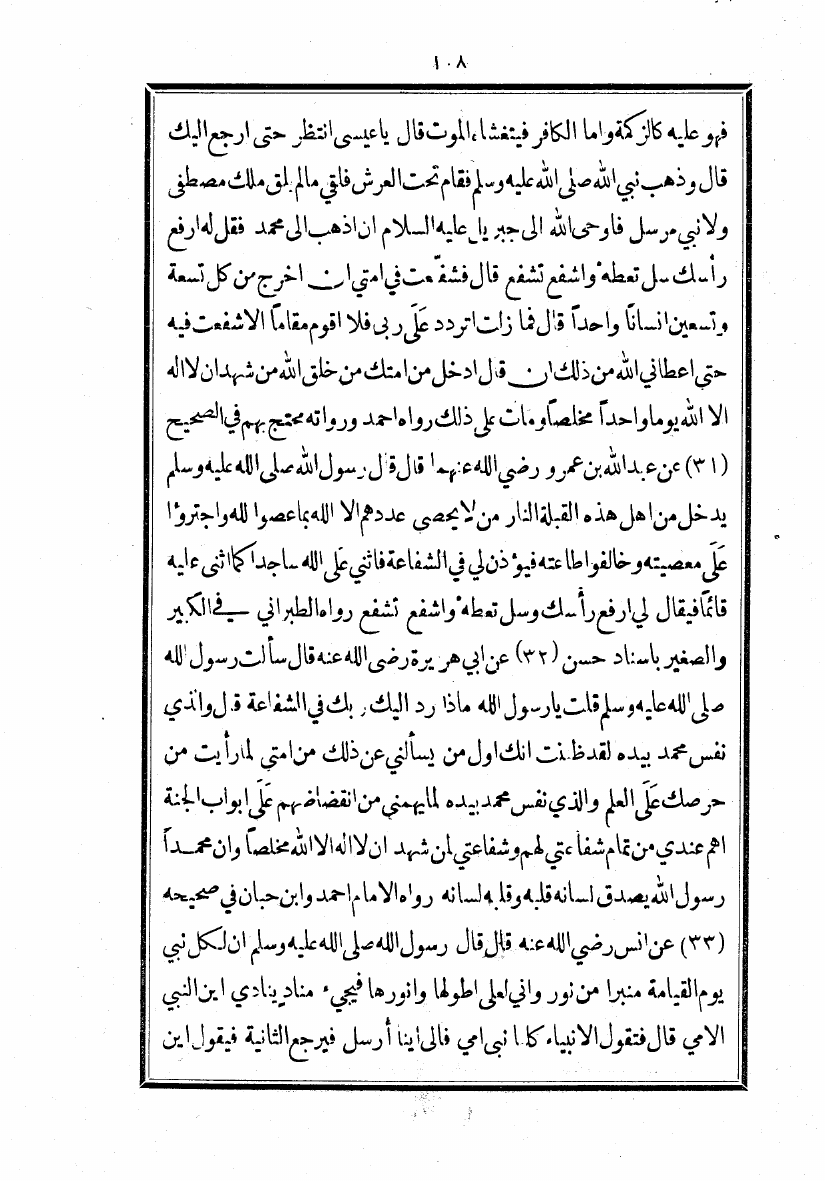 ١٠٨
فهو عليه كالزكمة واما الكافر فيتغشاه الموت قال ياعيسى انتظر حتى ارجع اليك
قال وذهب نبي الله صلى الله عليه وسلم فقام تحت العرش فلقي مالم يلق ملك مصطفى
ولا نبي مرسل فاوحى الله الى جبريل عليه السلام ان اذهب الى محمد فقل له ارفع
رأسك سل تعطه واشفع تشفع قال فشفّعت في امتي ان اخرج من كل تسعة
وتسعين انساناً واحداً قال فما زلت اتردد عَلَى ربى فلا اقوم مقاماً الا شفعت فيه
حتى اعطاني الله من ذلك ان قال ادخل من امتك من خلق الله من شهد ان لا اله
الا الله يوما واحداً مخلصاً ومات على ذلك رواه احمد ورواته محتج بهم في الصحيح
(٣١) عن عبد الله بن عمرو رضي الله عنهما قال قال رسول الله صلى الله عليه وسلم
يدخل من اهل هذه القبلة النار من لا يحصى عددهم الا الله بما عصوا لله واجترؤا
عَلَى معصيته وخالفوا طاعته فيؤذن لي في الشفاعة فاثني عَلَى الله ساجدا كما اثنى عليه
قائماً فيقال لي ارفع رأسك وسل تعطه واشفع تشفع رواه الطبراني في الكبير
والصغير باسناد حسن (٣٢) عن ابي هريرة رضى الله عنه قال سألت رسول الله
صلى الله عليه وسلم قلت يارسول الله ماذا رد اليك ربك في الشفاعة قال والذي
نفس محمد بيده لقد ظننت انك اول من يسألني عن ذلك من امتي لما رأيت من
حرصك عَلَى العلم والذي نفس محمد بيده لما يهمني من انقضاضهم عَلَى ابواب الجنة
اهم عندي من تمام شفاعتي لهم وشفاعتي لمن شهد ان لا اله الا الله مخلصاً وان محمداً
رسول الله يصدق لسانه قلبه وقلبه لسانه رواه الامام احمد وابن حبان في صحيحه
(٣٣) عن انس رضي الله عنه قال قال رسول الله صلى الله عليه وسلم ان لكل نبي
يوم القيامة منبرا من نور واني لعلى اطولها وانورها فيجيء منادٍ ينادي اين النبي
الامي قال فتقول الانبياء كلنا نبى امي فالى أينا أرسل فيرجع الثانية فيقول اين